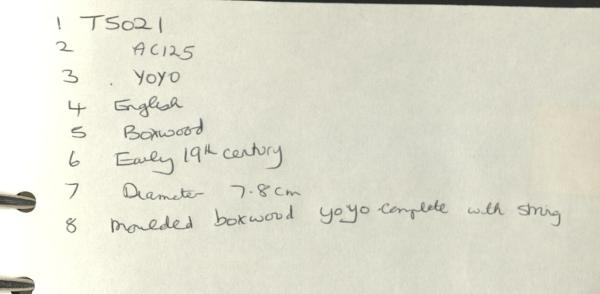 1 T5021
2 AC125
3 . YOYO
4 English
5 Boxwood
6 Early 19th century
7 Diameter 7.8cm
8 Moulded boxwood yoyo complete with string